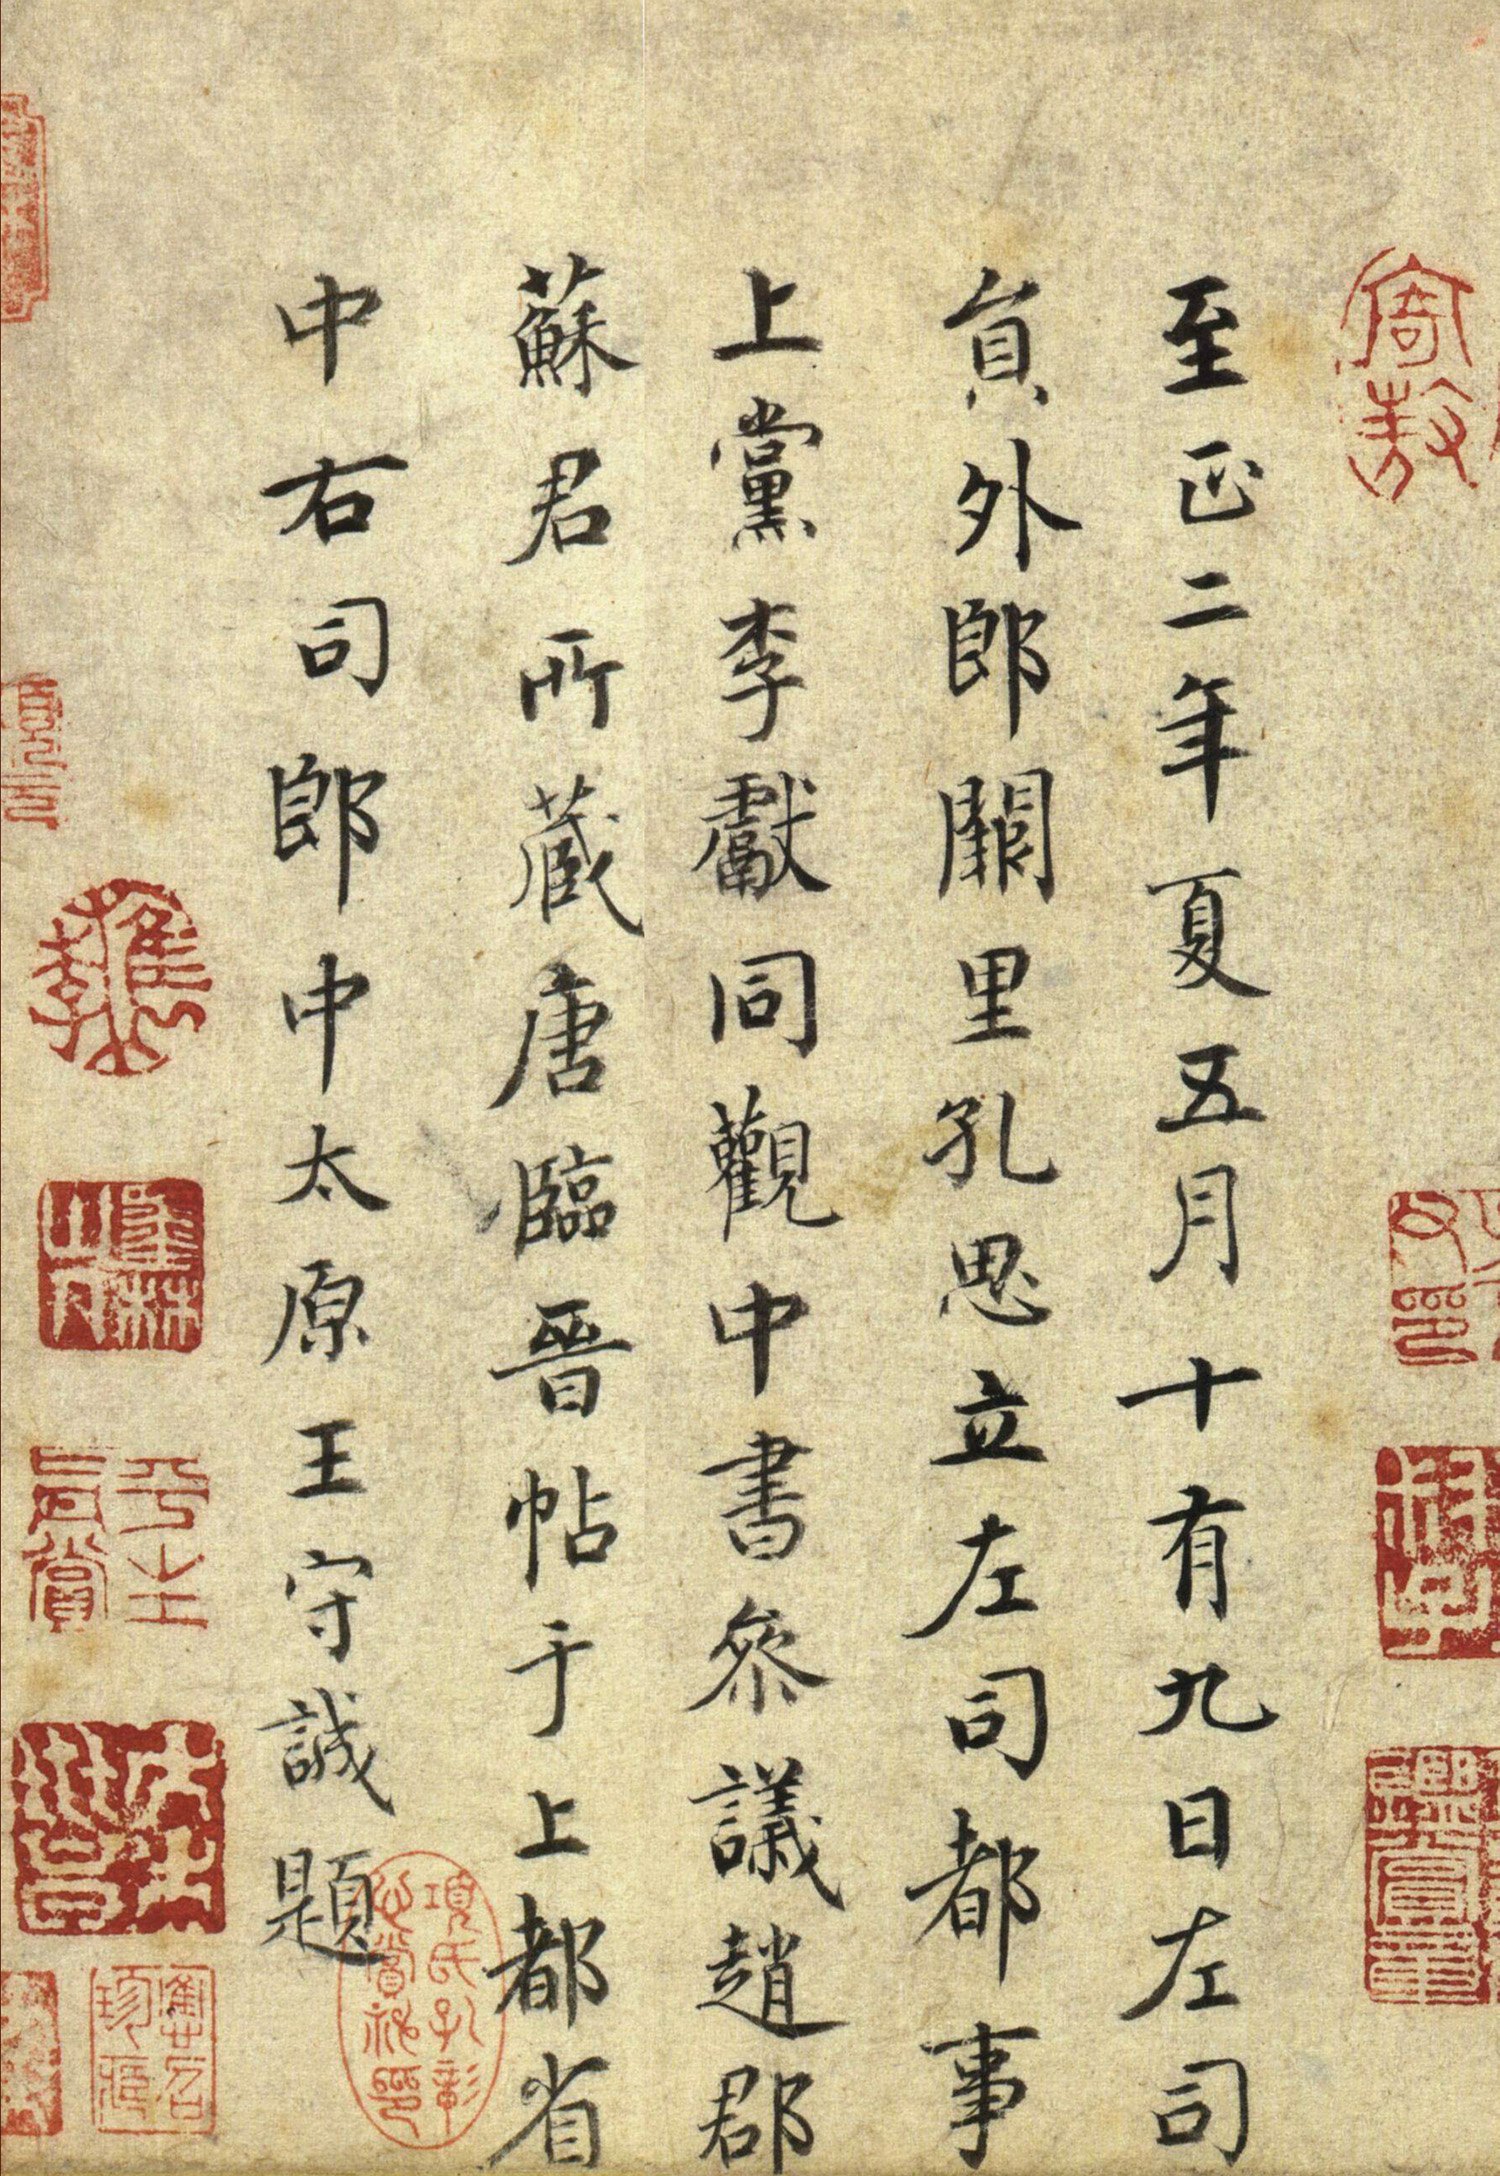 至正二年夏五月十有九日左司
員外郎闕里孔思立左司都事
上黨李獻同觀中書參議趙郡
蘇君所藏唐臨晉帖于上都省
中右司郎中太原王守誠題
寄敖
平生
真賞
項氏子彰